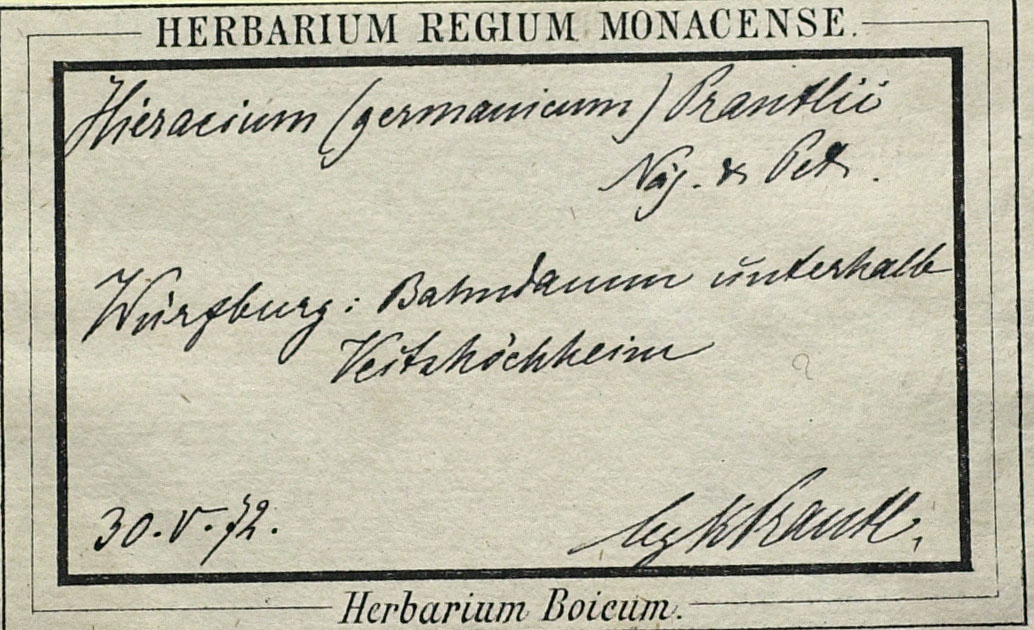 HERBARIUM REGIUM MONACENSE.
Hieracium (germanicum) Prantlii
Näg. & Pet.
Würzburg: Bahndamm unterhalb
Veitshöchheim
30.V.72.
leg K Prantl.
Herbarium Boicum.